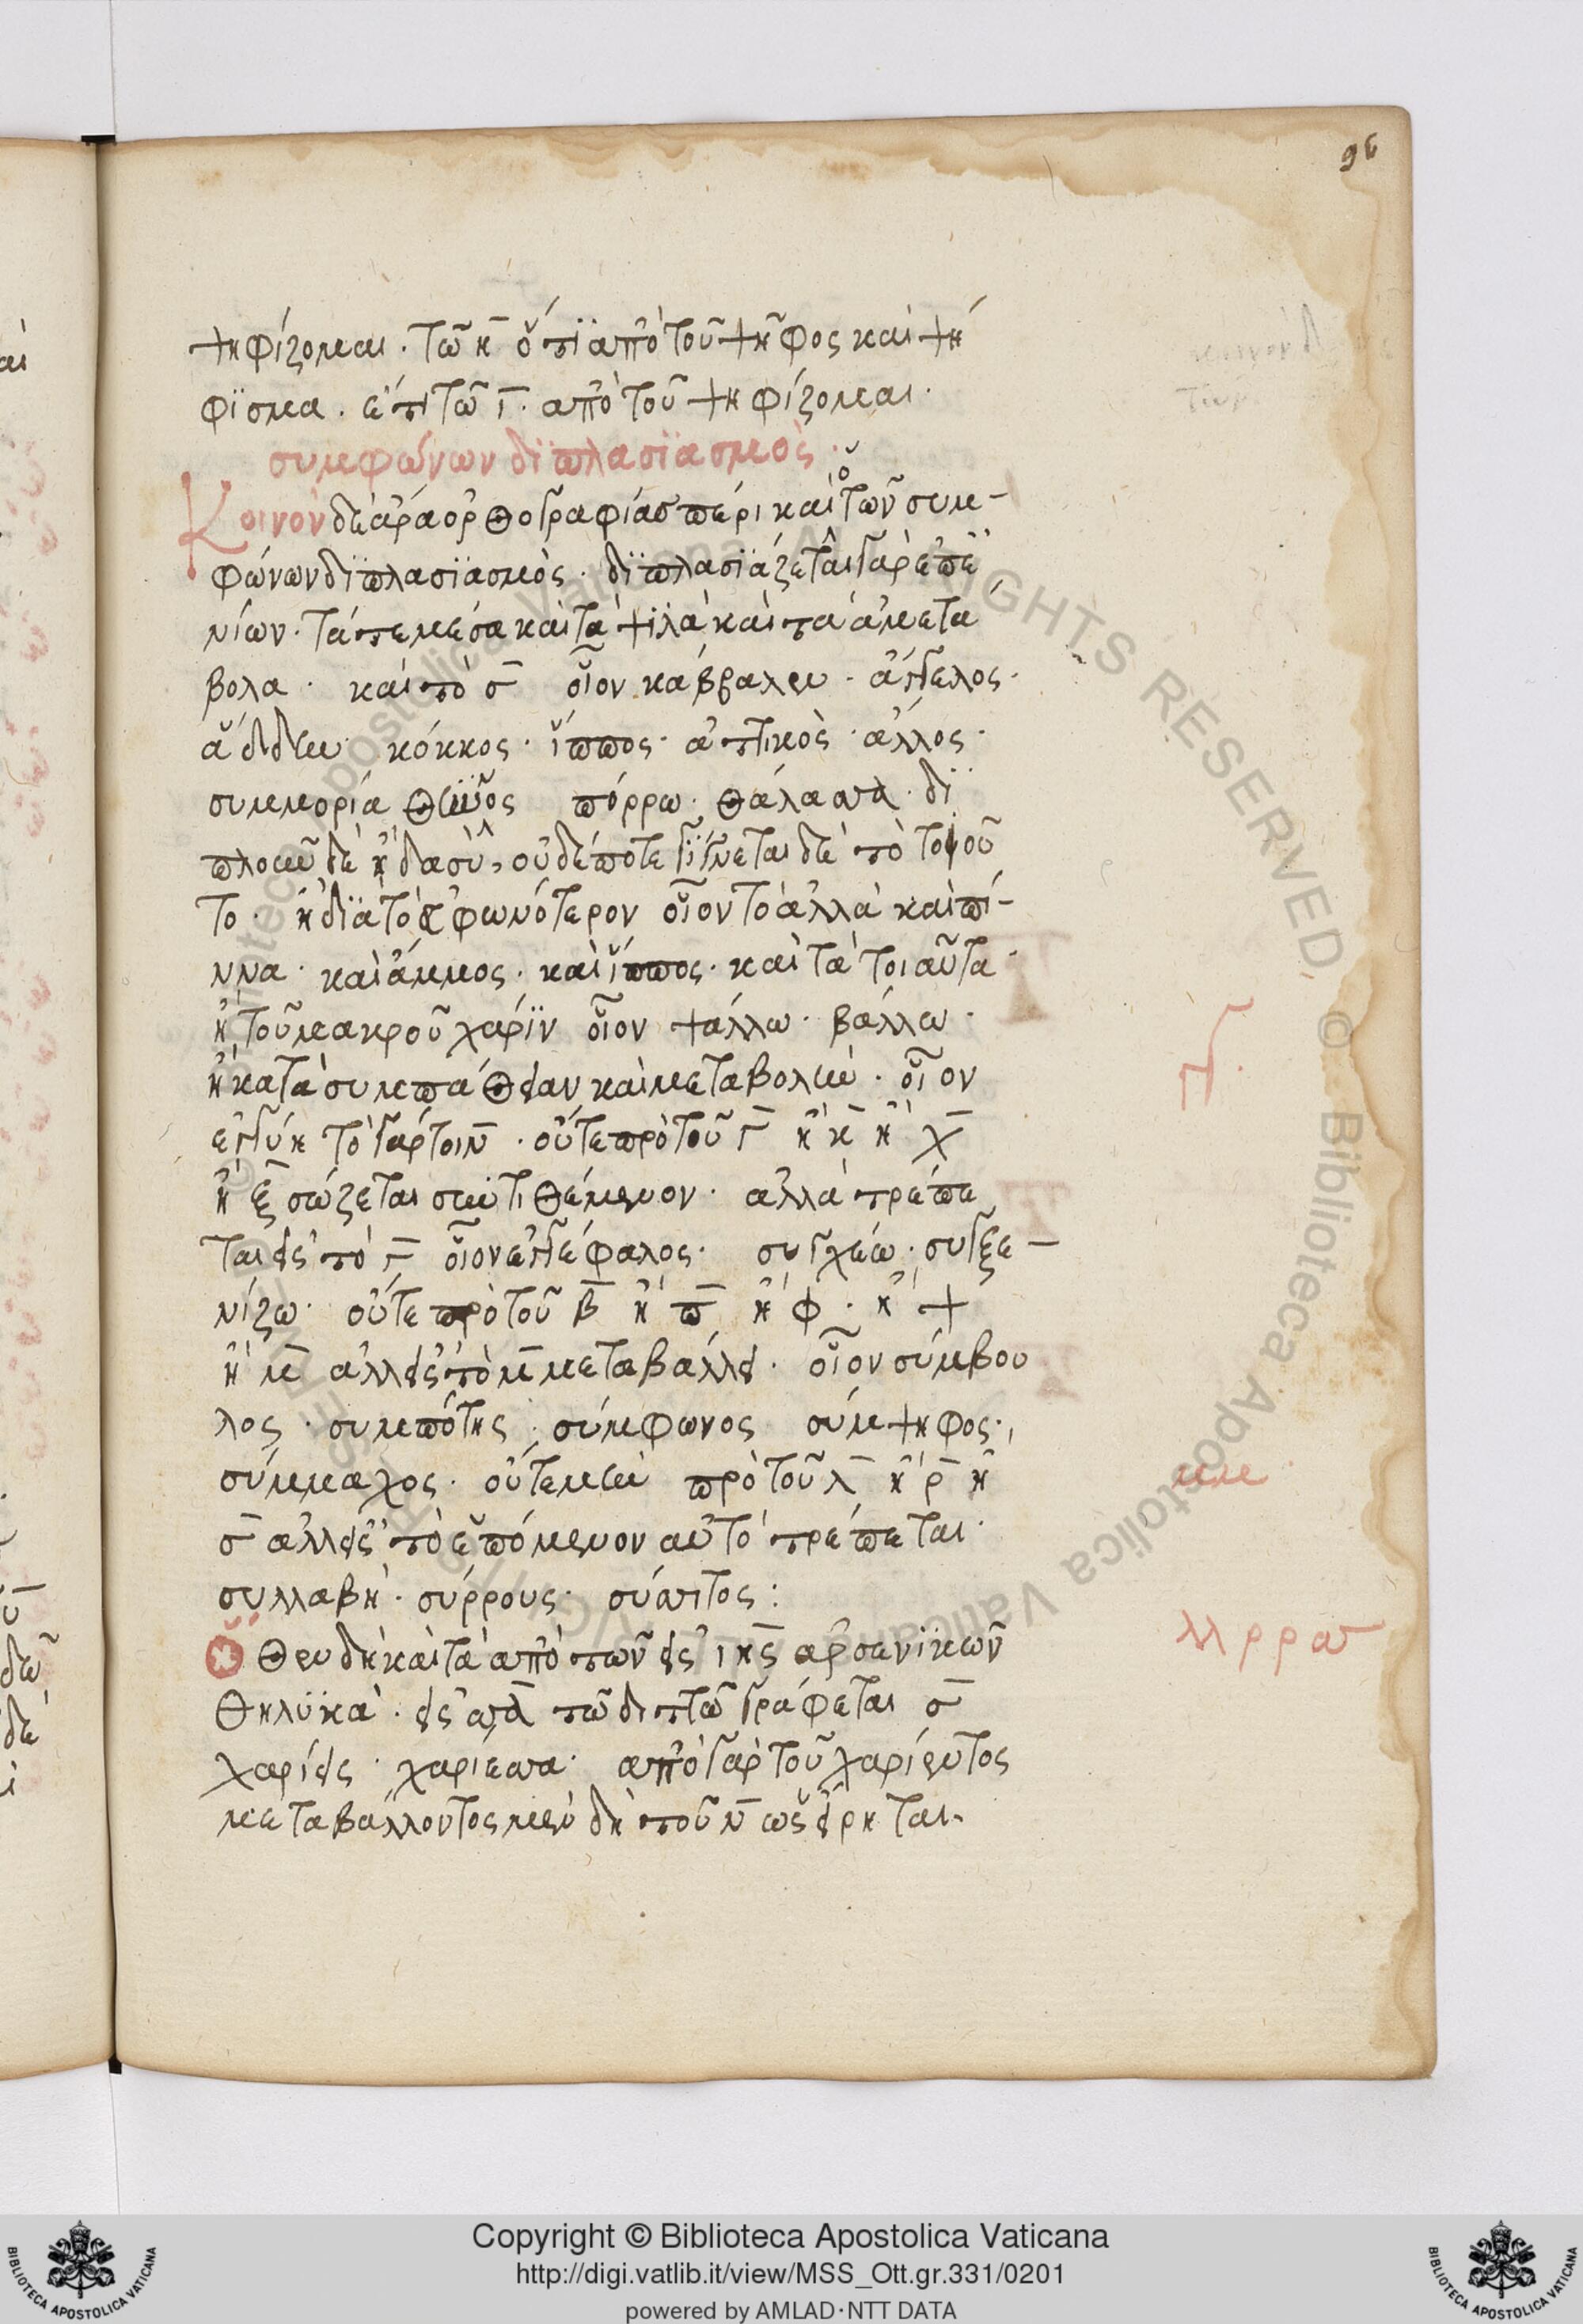 96
ψηφίζομαι. τῶ η ὅτι ἀπὸ τοῦ ψῆφος καὶ ψή
φϊσμα. ἐπὶ τῶ ι. ἀπὸ τοῦ ψηφίζομαι.
συμφώνων διπλασϊασμὸς.
Κοινὸν δὲ ἄρα ὀρθογραφίας πέρι καὶ ὁ τῶν συμ-
φώνων δϊπλασϊασμὸς. δϊπλασϊάζεται γὰρ ἐπε
νίων. τά τε μέσα καὶ τὰ ψιλὰ καὶ τὰ ἀμετά
βολα. καὶ τὸ σ οἷον κάββαλεν. ἄγγελος.
ἄδδην κόκκος. ἵππος. ἀττικὸς. ἄλλος.
συμμορία θύννος πόρρω. θάλασσα. δι
πλοῦν δὲ ἢ δασὺ, οὐδέποτε γίγνεται δὲ τὸ τοιοῦ
το. ἢ διὰ τὸ εὐφωνότερον οἷον τὸ ἀλλὰ καὶ πί-
ννα. καὶ ἄμμος. καὶ ἵππος. καὶ τὰ τοιαῦτα.
ἢ τοῦ μακροῦ χάρϊν οἷον ψάλλω. βάλλω.
ἢ κατὰ συμπάθειαν καὶ μεταβολὴν. οἷον
ἐγγύη τὸ γάρ τοι ν. οὔτε πρὸ τοῦ γ ἢ κ ἢ χ
ἢ ξ σώζεται συντιθέμενον. ἀλλὰ τρέπε
ται εἰς τὸ γ οἷον ἐγκέφαλος. συγχέω. συγξε-
νίζω. οὔτε πρὸ τοῦ β ἢ π ἢ φ. ἢ ψ
ἢ μ ἀλλ εἰς τὸ μ μεταβάλλει. οἷον σύμβου
λος. συμπότης. σύμφωνος σύμψηφος.
σύμμαχος. οὔτε μὴν πρὸ τοῦ λ ἢ ρ ἢ
σ ἀλλ εἰς τὸ ἑπόμενον αὐτὸ τρέπεται.
συλλαβὴ. σύρρους. σύσσιτος:
Ὅθεν δὴ καὶ τὰ ἀπὸ τῶν εἰς ης ἀρσενϊκῶν
θηλϋκὰ. εἰς σσα τῶ διττῶ γράφεται σ
χαρίεις. χαρίεσσα. ἀπὸ γὰρ τοῦ χαρίεντος
μεταβάλλοντος μὲν δὴ τοῦ ν ὡς εἴρηται.
μμ
λλ ρρ σσ
Copyright © Biblioteca Apostolica Vaticana
http://digi.vatlib.it/view/MSS_Ott.gr.331/0201
powered by AMLAD·NTT DATA
BIBLIOTECA APOSTOLICA VATICANA
BIBLIOTECA APOSTOLICA VATICANA